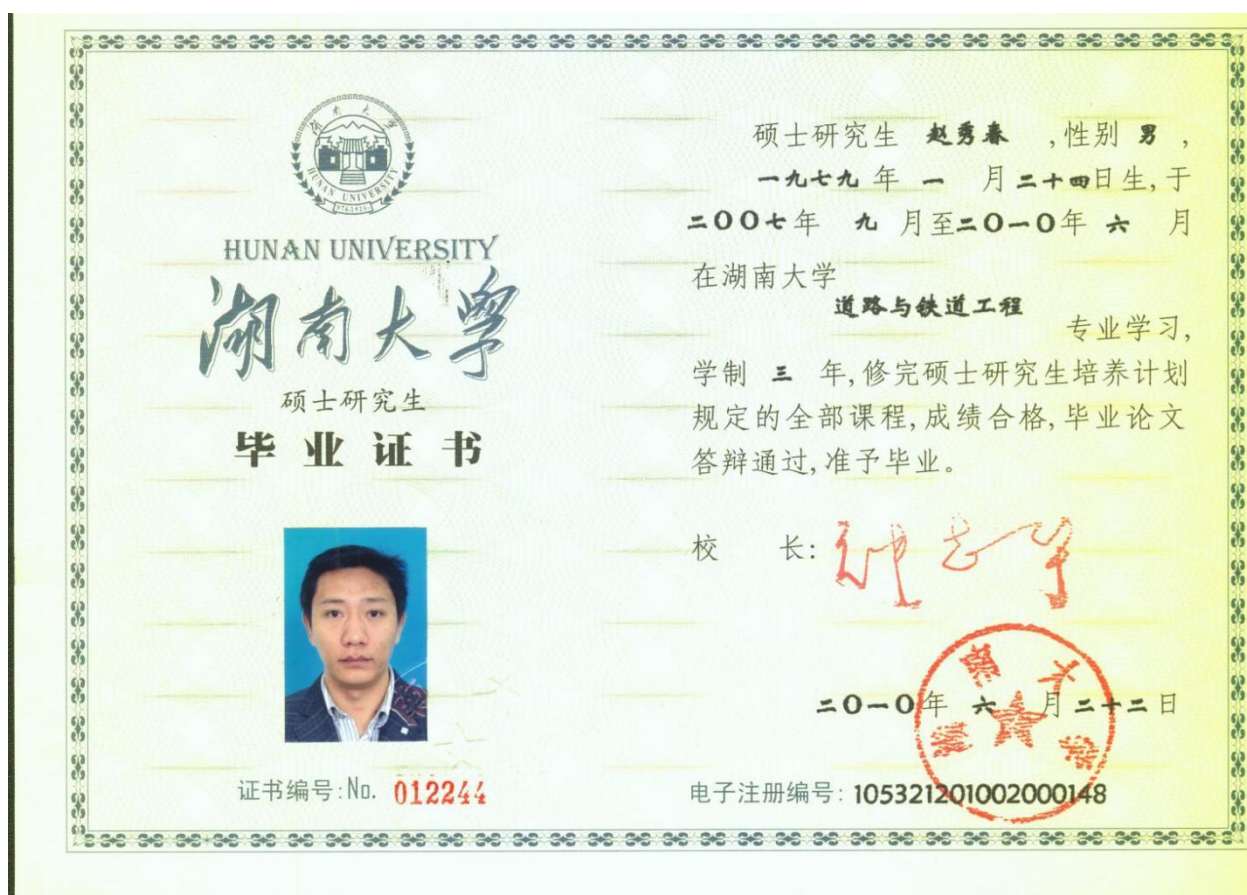 HUNAN UNIVERSITY
湖南大学
硕士研究生
毕业证书
证书编号:No. 012244
硕士研究生 赵秀春 ,性别 男 ,
一九七九 年 一 月 二十四日生,于
二〇〇七年 九 月至二〇一〇年 六 月
在湖南大学
道路与铁道工程
专业学习,
学制 三 年,修完硕士研究生培养计划
规定的全部课程,成绩合格,毕业论文
答辩通过,准予毕业。
校 长:
二〇一〇年 六 月 二十二日
电子注册编号: 105321201002000148